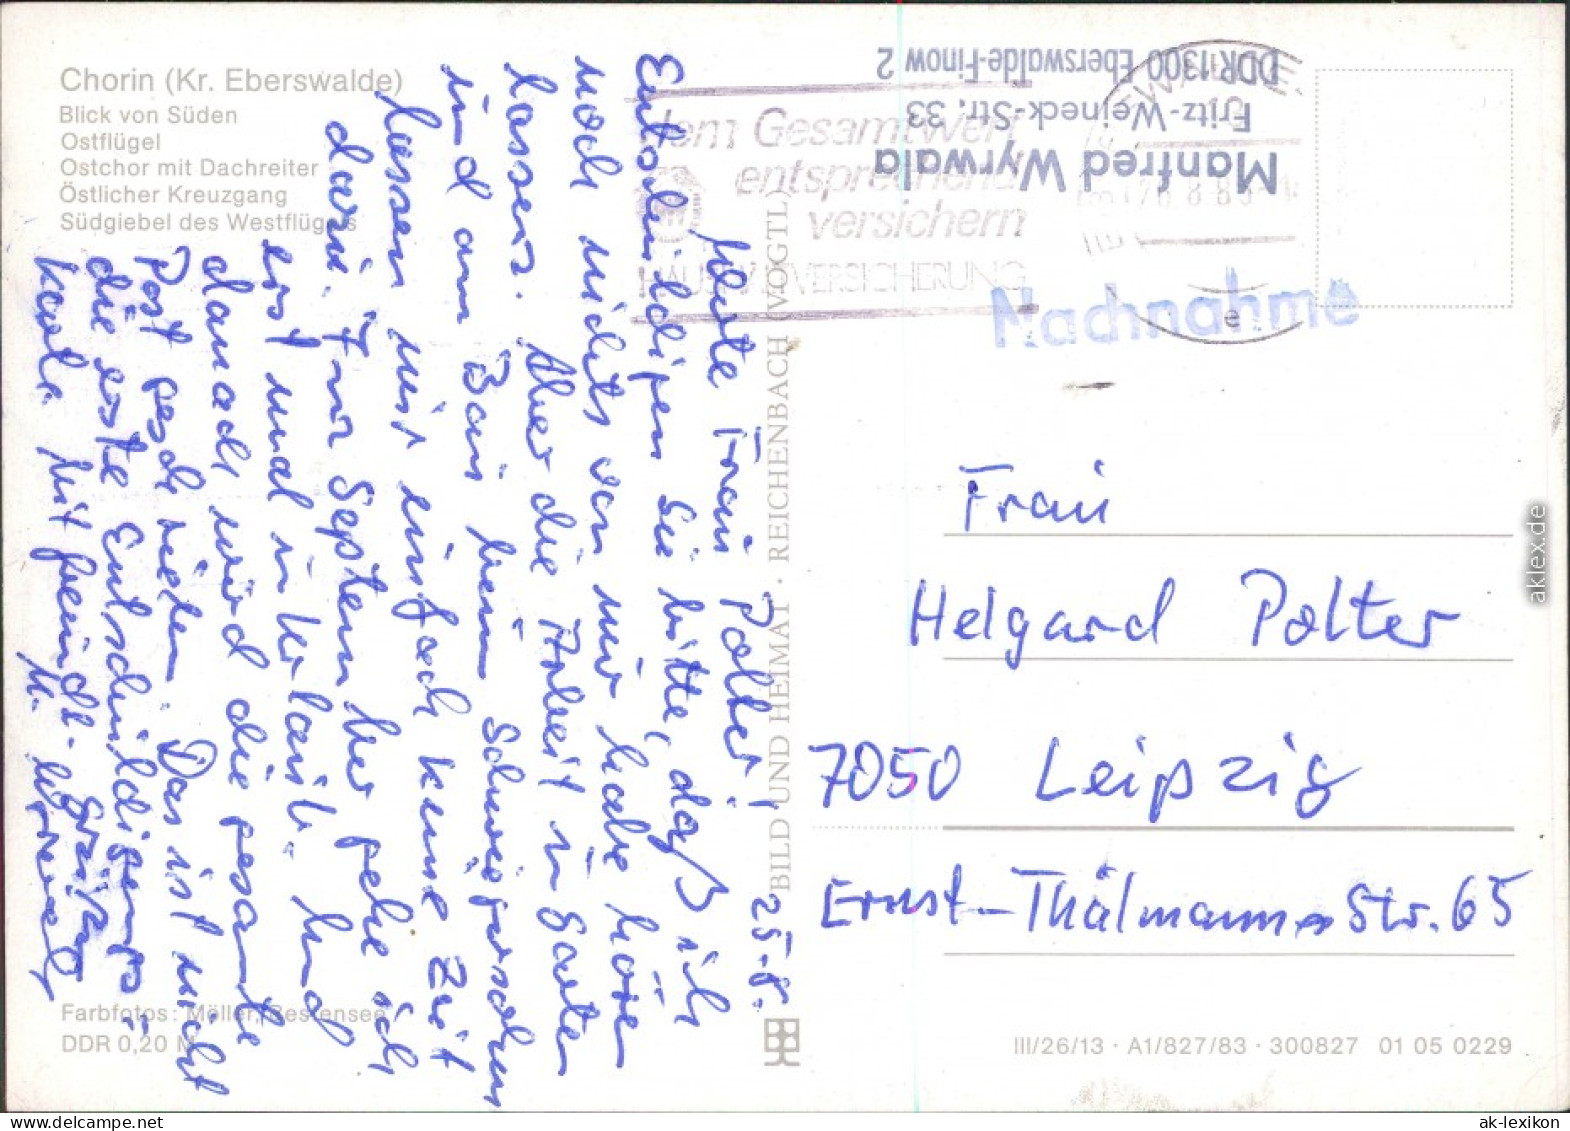 Chorin (Kr. Eberswalde)
Blick von Süden
Ostflügel
Ostchor mit Dachreiter
Östlicher Kreuzgang
Südgiebel des Westflügels
25.8.
Werte Frau Polter!
Entschuldigen Sie bitte, daß ich
noch nichts von mir habe hören
lassen. Aber die Arbeit im Garten
und am Bau beim Schwiegersohn
lassen mir einfach keine Zeit
dazu. Im September gehe ich
erst mal in Urlaub. Und
danach wird die gesamte
Post geschrieben. Das ist nicht
die erste Entschuldigungs-
karte. Mit freundl. Grüßen
M. Wyrwala
Farbfotos: Möller, Bestensee
DDR 0,20 M
BILD UND HEIMAT · REICHENBACH (VOGTL)
Manfred Wyrwala
Fritz-Weineck-Str. 33
DDR 1300 Eberswalde-Finow 2
dem Gesamtwert
entsprechend
versichern
HAUSRATVERSICHERUNG
e
Nachnahme
Frau
Helgard Polter
7050 Leipzig
Ernst-Thälmann-Str. 65
III/26/13 · A1/827/83 · 300827 01 05 0229
aklex.de
ak-lexikon